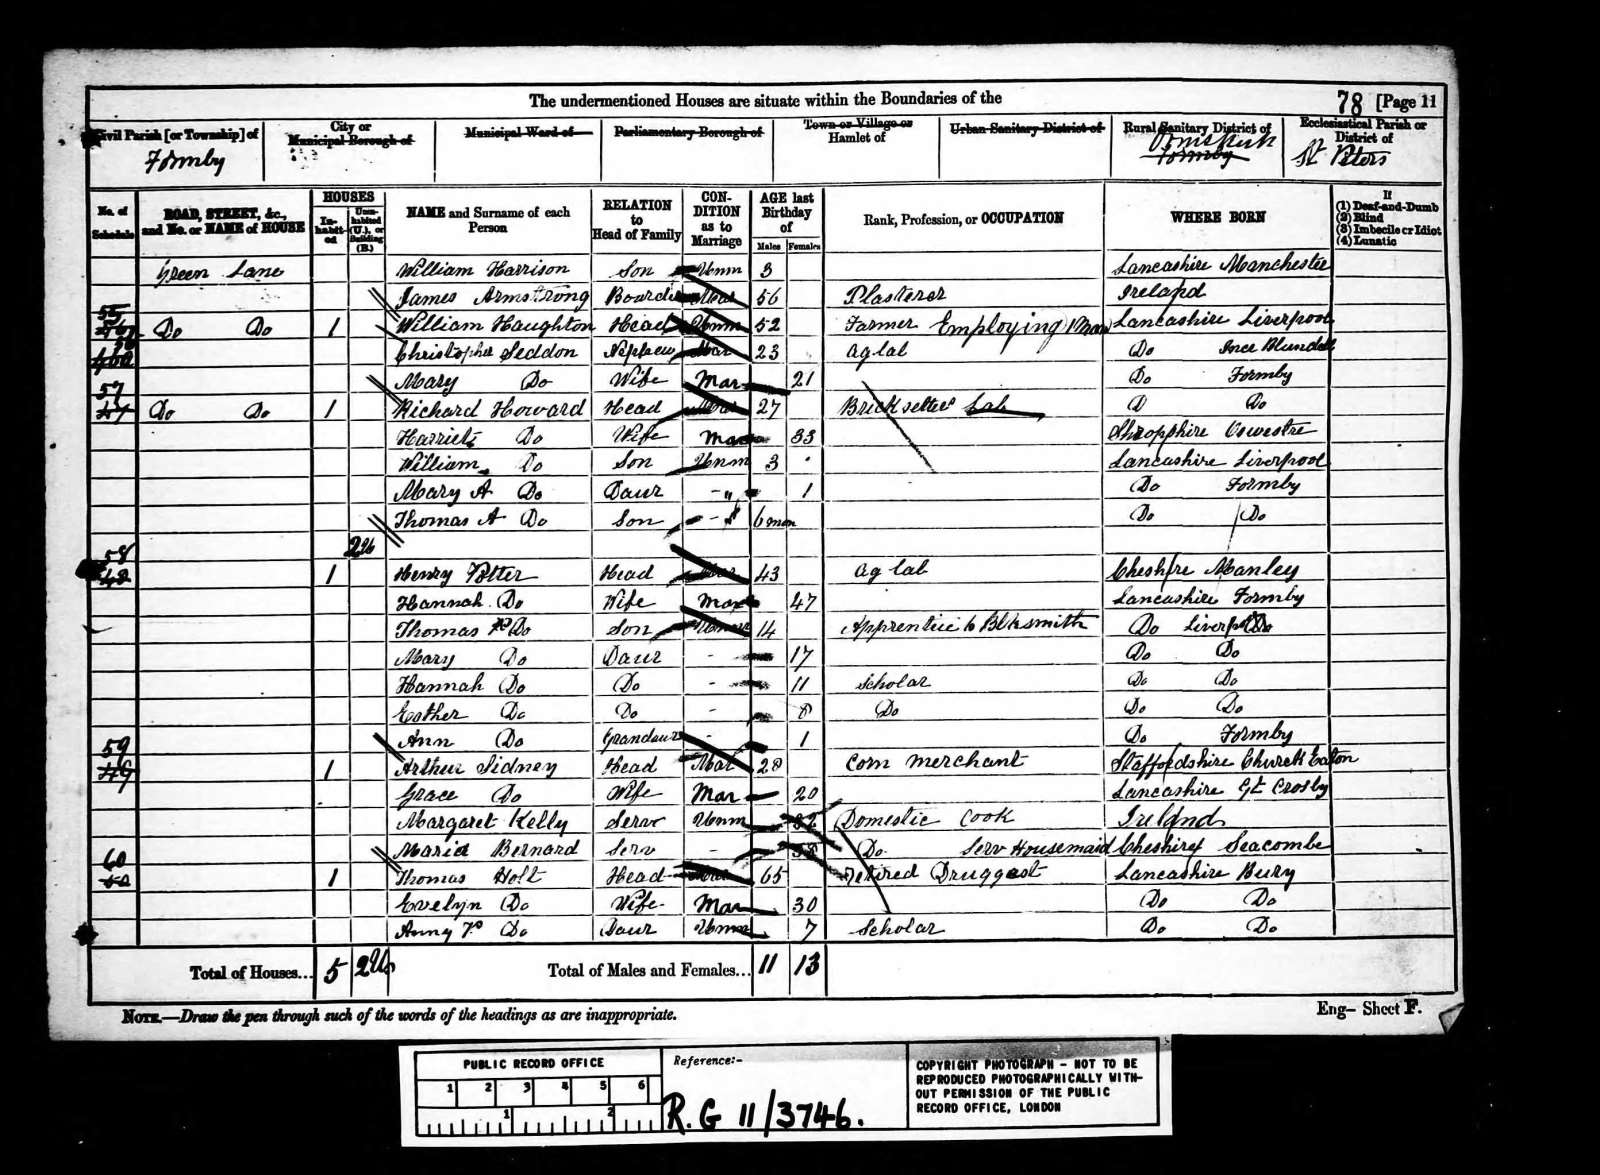 The undermentioned Houses are situate within the Boundaries of the
78 [Page 11
Civil Parish [or Township] of
Formby
City or Municipal Borough of
Municipal Ward of
Parliamentary Borough of
Town or Village or Hamlet of
Urban Sanitary District of
Rural Sanitary District of
Ormskirk
Formby
Ecclesiastical Parish or District of
St Peters
No. of Schedule
ROAD, STREET, &c., and No. or NAME of HOUSE
HOUSES
Inhabited
Uninhabited (U.), or Building (B.)
NAME and Surname of each Person
RELATION to Head of Family
CONDITION as to Marriage
AGE last Birthday of
Males Females
Rank, Profession, or OCCUPATION
WHERE BORN
If
(1) Deaf-and-Dumb
(2) Blind
(3) Imbecile or Idiot
(4) Lunatic
Green Lane William Harrison Son Unm 3 Lancashire Manchester
James Armstrong Boarder Mar 56 Plasterer Ireland
55 Do Do 1 William Haughton Head Unm 52 Farmer Employing 1 man Lancashire Liverpool
56 Christopher Seddon Nephew Mar 23 Ag lab Do Ince Blundell
Mary Do Wife Mar 21 Do Formby
57 47 Do Do 1 Richard Howard Head Mar 27 Bricksetter Lab D Do
Harriet Do Wife Mar 33 Shropshire Oswestre
William Do Son Unm 3 Lancashire Liverpool
Mary A Do Daur - " 1 Do Formby
Thomas A Do Son - " 6 mon Do Do
2 U
58 48 1 Henry Potter Head Mar 43 Ag lab Cheshire Manley
Hannah Do Wife Mar 47 Lancashire Formby
Thomas Do Son Unm 14 Apprentice to Blksmith Do Liverpool Do
Mary Do Daur - 17 Do Do
Hannah Do Do - 11 Scholar Do Do
Esther Do Do - 8 Do Do Do
Ann Do Grandaur - 1 Do Formby
59 49 1 Arthur Sidney Head Mar 28 Corn merchant Staffordshire Church Eaton
Grace Do Wife Mar 20 Lancashire Gt Crosby
Margaret Kelly Serv Unm Domestic Cook Ireland
Maria Bernard Serv - Do Serv Housemaid Cheshire Seacombe
60 50 1 Thomas Holt Head Mar 65 retired Druggest Lancashire Bury
Evelyn Do Wife Mar 30 Do Do
Do Daur Unm 7 Scholar Do Do
Total of Houses... 5 2 U Total of Males and Females... 11 13
NOTE.—Draw the pen through such of the words of the headings as are inappropriate.
Eng— Sheet F.
PUBLIC RECORD OFFICE
1 2 3 4 5 6
1 2
Reference:-
R.G 11/3746.
COPYRIGHT PHOTOGRAPH - NOT TO BE
REPRODUCED PHOTOGRAPHICALLY WITH-
OUT PERMISSION OF THE PUBLIC
RECORD OFFICE, LONDON